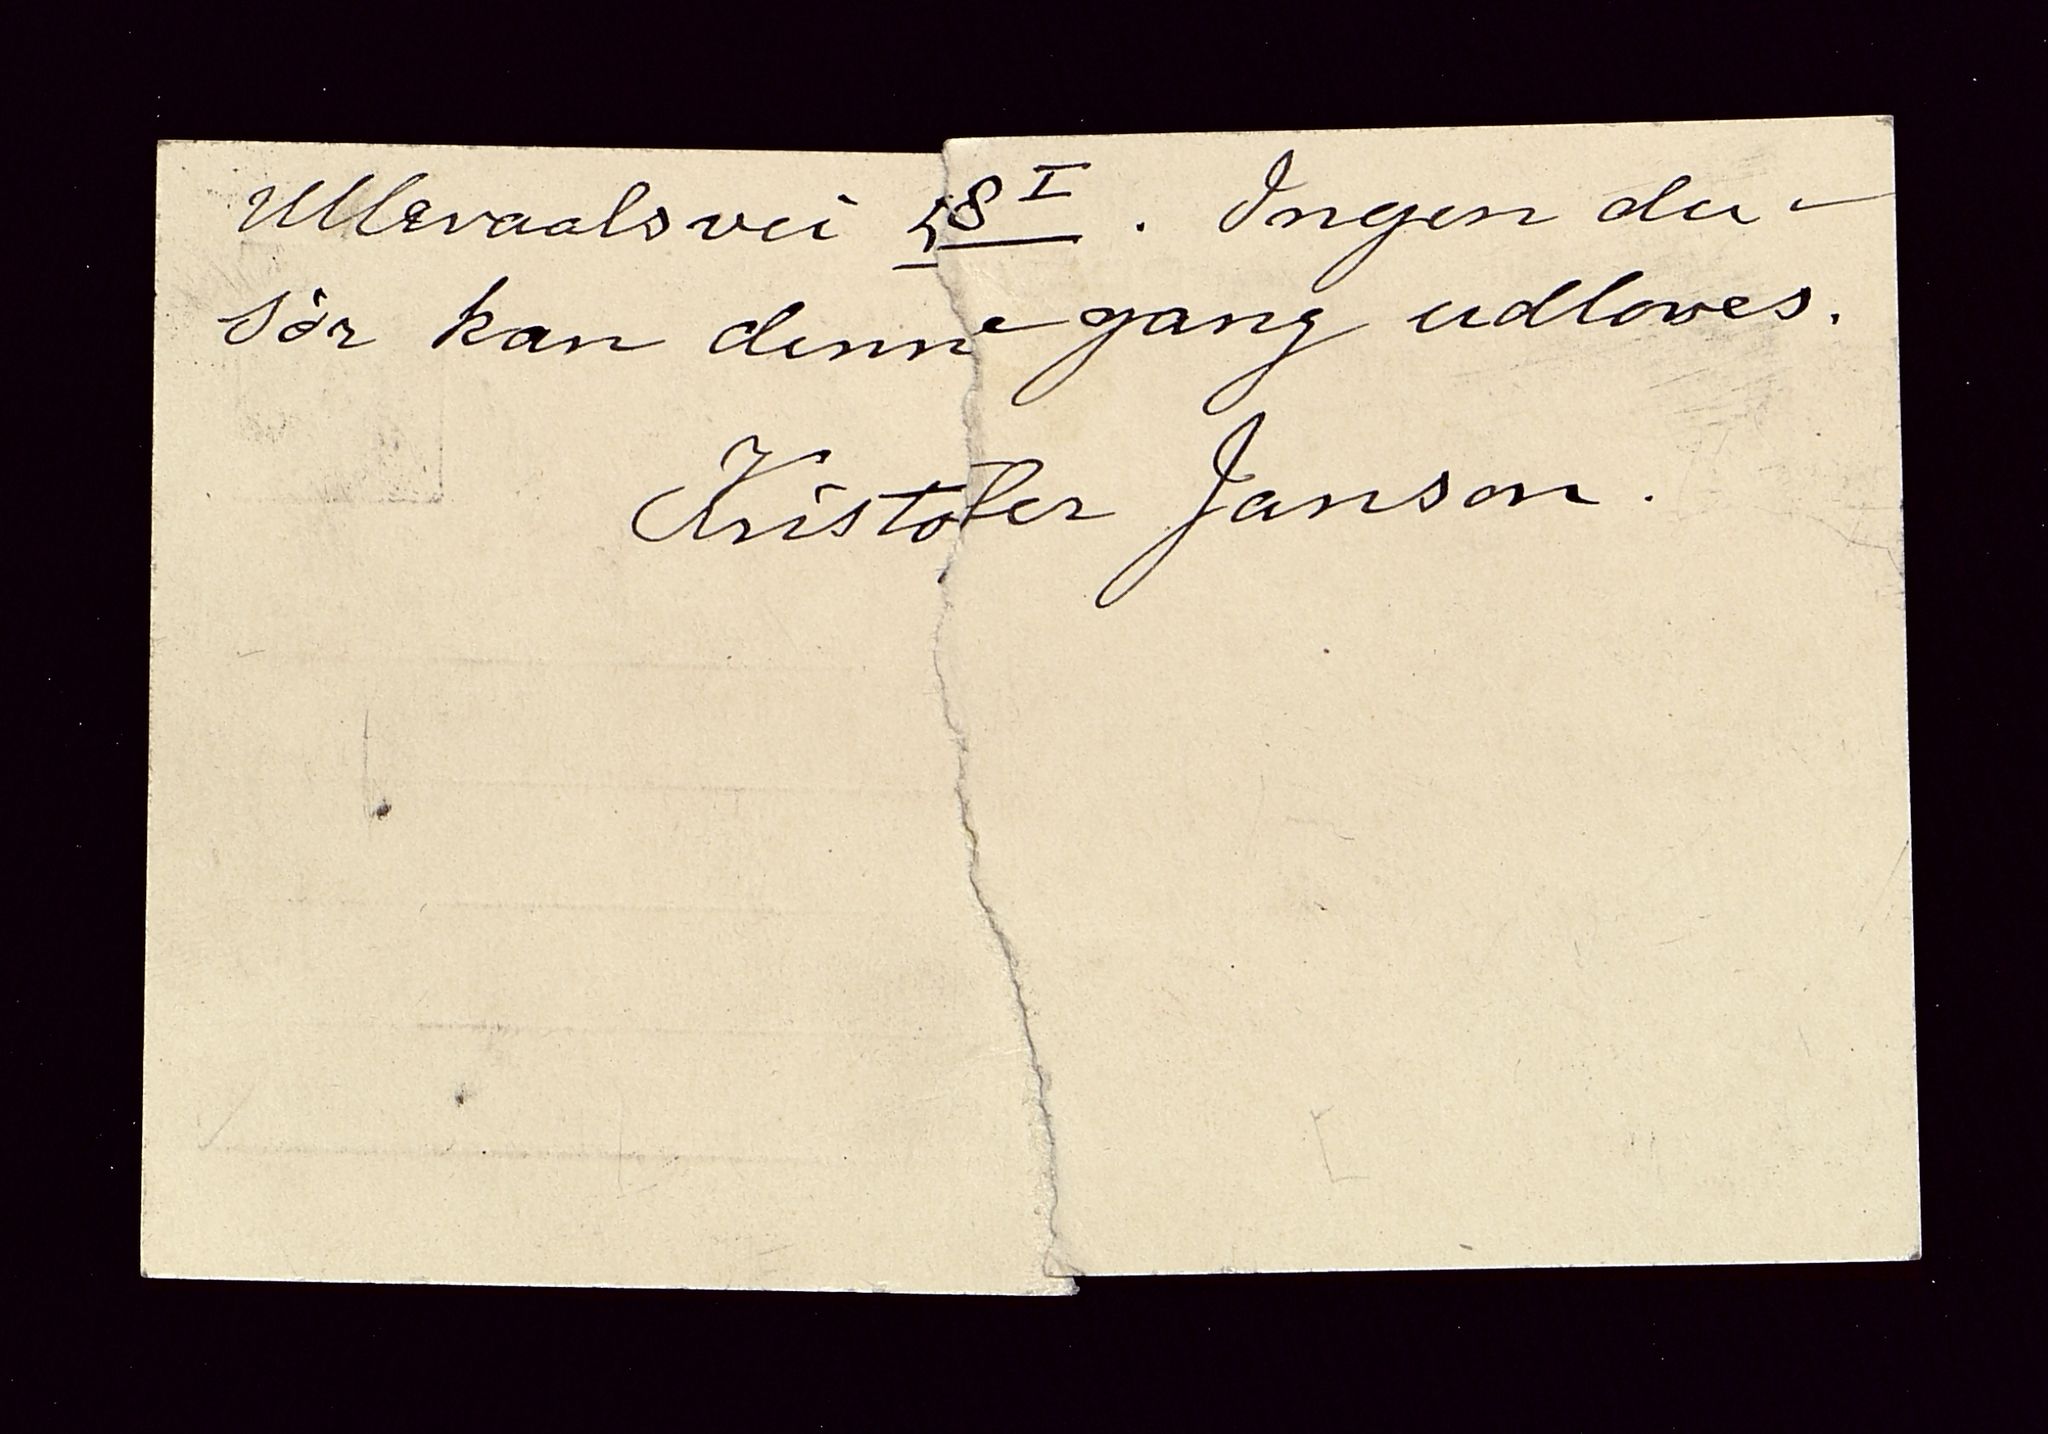 Ullevaalsvei 58 I. Ingen du-
sör kan denne gang udloves.
Kristofer Janson.